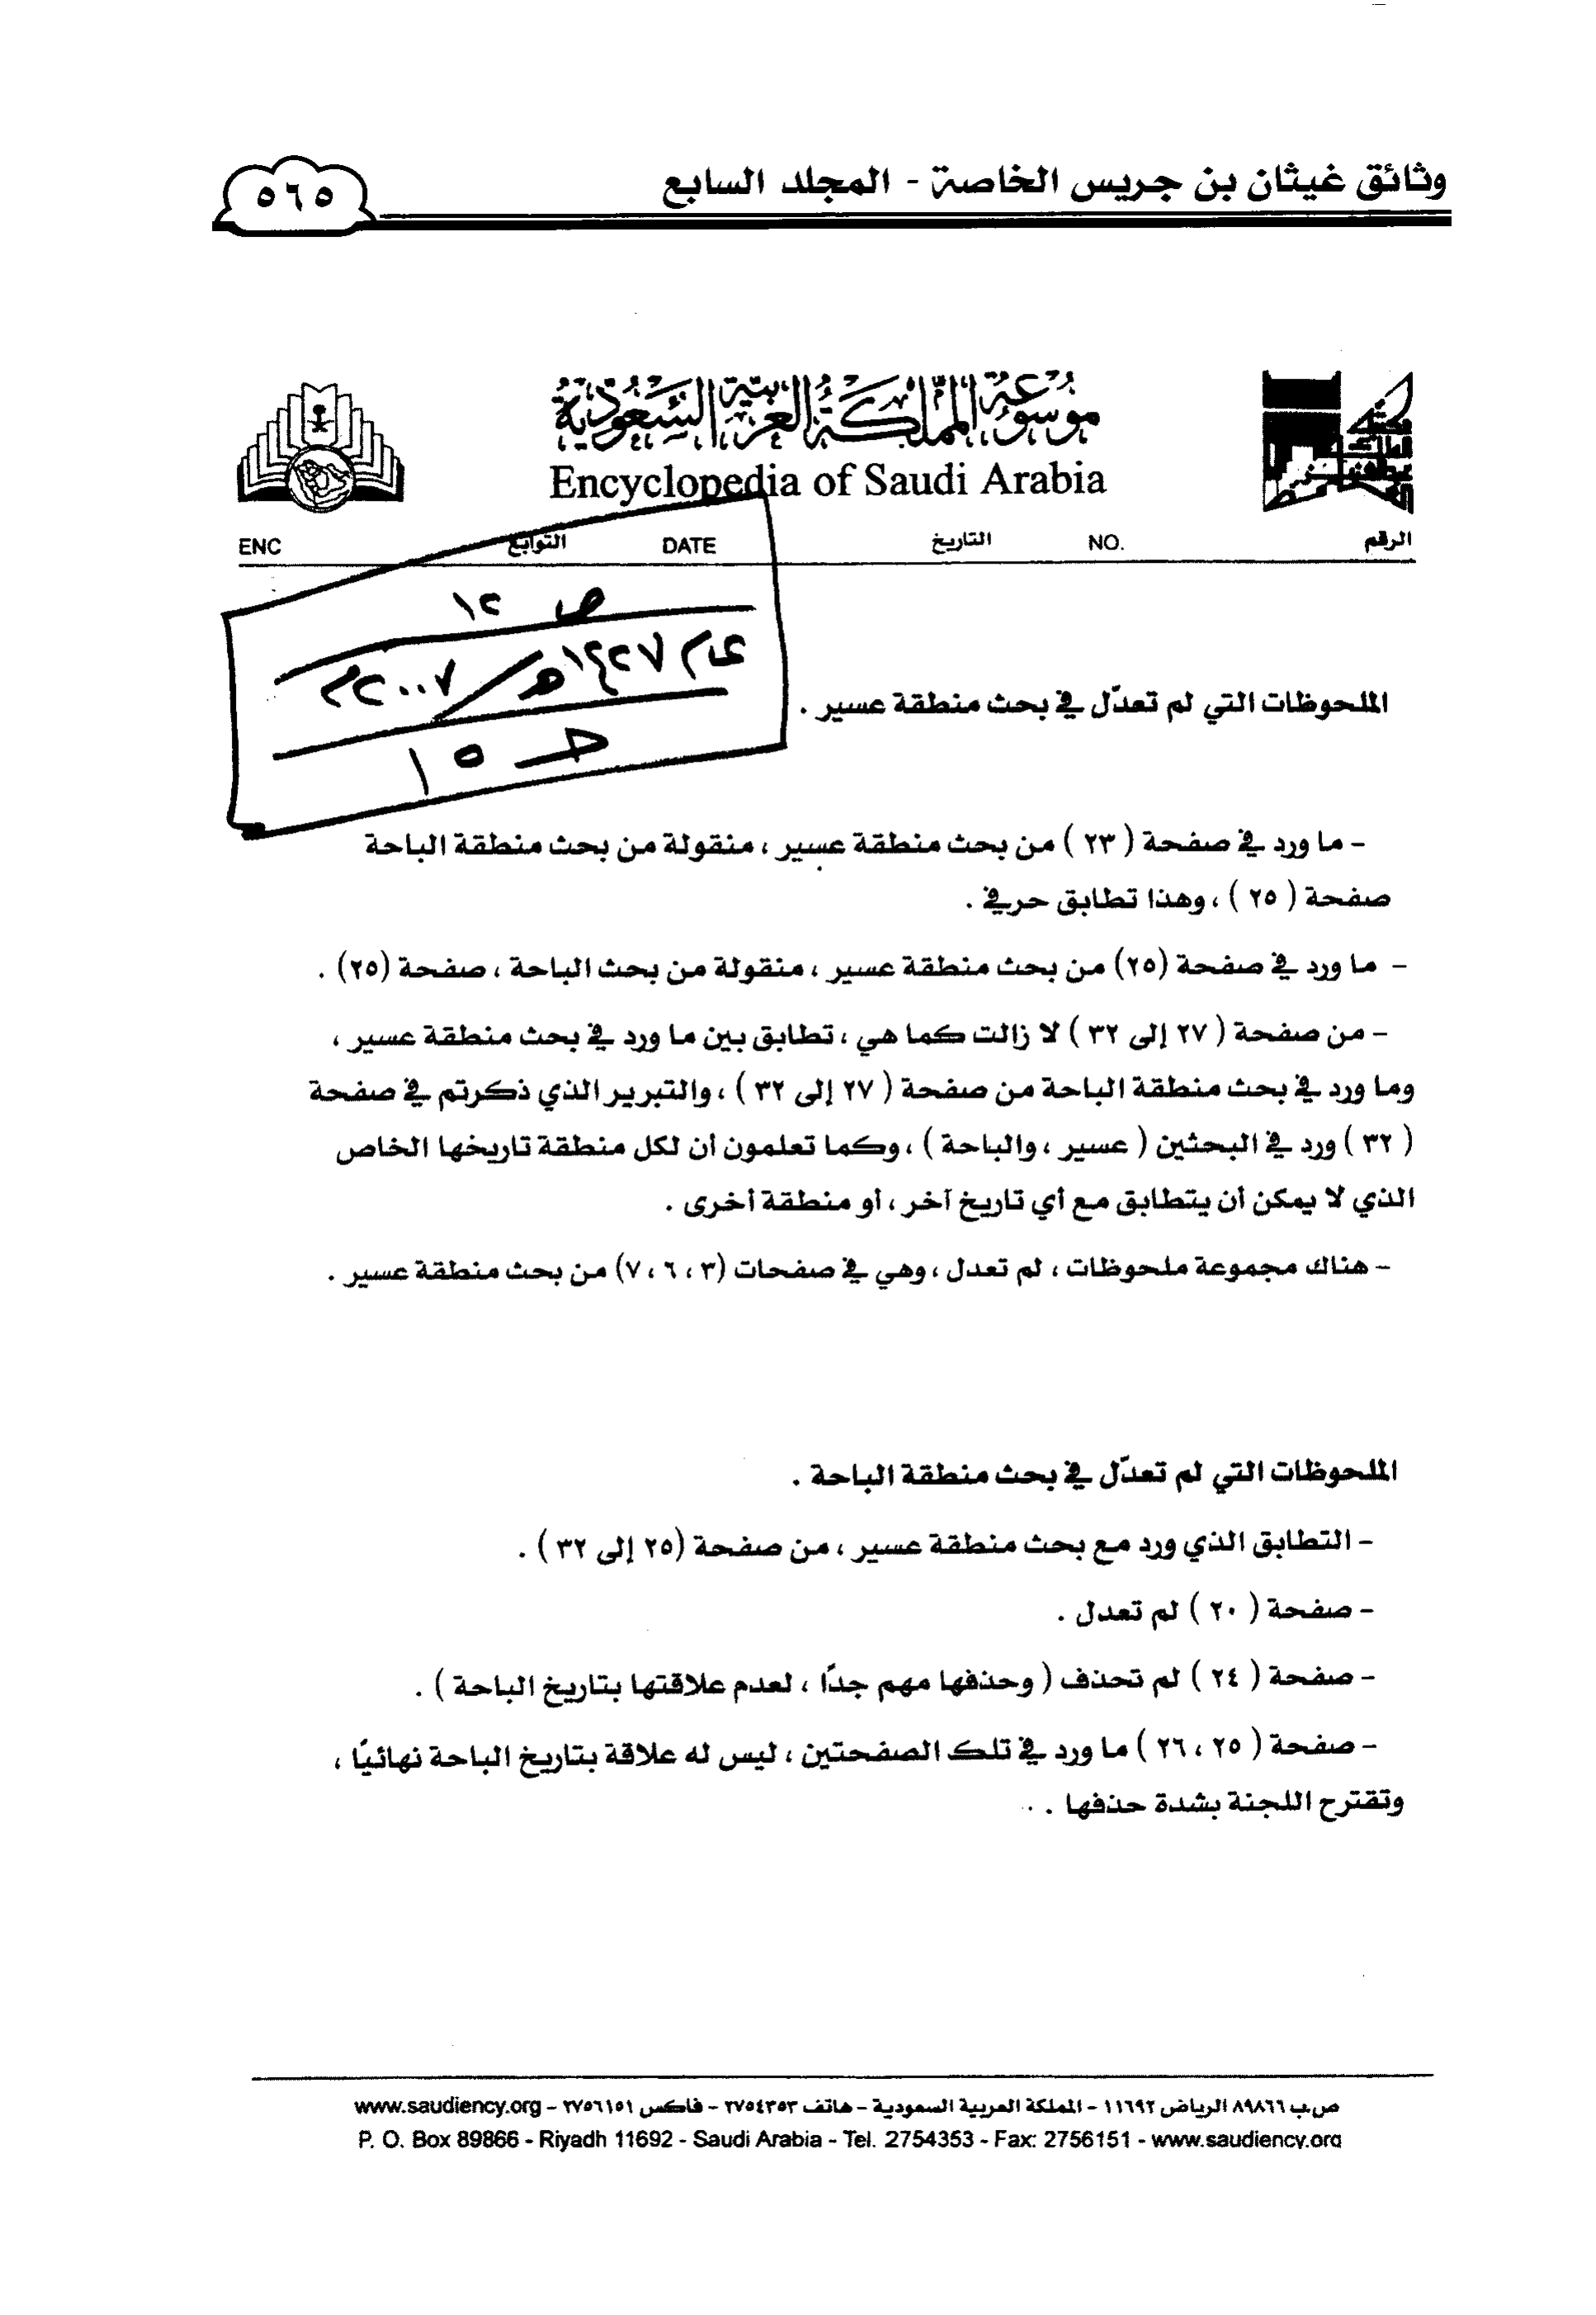 وثائق غيثان بن جريس الخاصة - المجلد السابع
٥٦٥
موسوعة المملكة العربية السعودية
Encyclopedia of Saudi Arabia
الرقم NO. التاريخ DATE التوابع ENC
ص ١٢
عام ١٤٢٧هـ/٢٠٠٧م
حـ ١٥
الملحوظات التي لم تعدّل في بحث منطقة عسير .
- ما ورد في صفحة ( ٢٣ ) من بحث منطقة عسير ، منقولة من بحث منطقة الباحة
صفحة ( ٢٥ ) ، وهذا تطابق حرفي .
- ما ورد في صفحة (٢٥) من بحث منطقة عسير ، منقولة من بحث الباحة ، صفحة (٢٥) .
- من صفحة ( ٢٧ إلى ٣٢ ) لا زالت كما هي ، تطابق بين ما ورد في بحث منطقة عسير ،
وما ورد في بحث منطقة الباحة من صفحة ( ٢٧ إلى ٣٢ ) ، والتبرير الذي ذكرتم في صفحة
( ٣٢ ) ورد في البحثين ( عسير ، والباحة ) ، وكما تعلمون أن لكل منطقة تاريخها الخاص
الذي لا يمكن أن يتطابق مع أي تاريخ آخر ، أو منطقة أخرى .
- هناك مجموعة ملحوظات ، لم تعدل ، وهي في صفحات (٣ ، ٦ ، ٧) من بحث منطقة عسير .
الملحوظات التي لم تعدّل في بحث منطقة الباحة .
- التطابق الذي ورد مع بحث منطقة عسير ، من صفحة (٢٥ إلى ٣٢ ) .
- صفحة ( ٢٠ ) لم تعدل .
- صفحة ( ٢٤ ) لم تحذف ( وحذفها مهم جدًا ، لعدم علاقتها بتاريخ الباحة ) .
- صفحة ( ٢٥ ، ٢٦ ) ما ورد في تلك الصفحتين ، ليس له علاقة بتاريخ الباحة نهائيًا ،
وتقترح اللجنة بشدة حذفها .
ص.ب ٨٩٨٦٦ الرياض ١١٦٩٢ - المملكة العربية السعودية - هاتف ٢٧٥٤٣٥٣ - فاكس ٢٧٥٦١٥١ - www.saudiency.org
P. O. Box 89866 - Riyadh 11692 - Saudi Arabia - Tel. 2754353 - Fax: 2756151 - www.saudiency.org